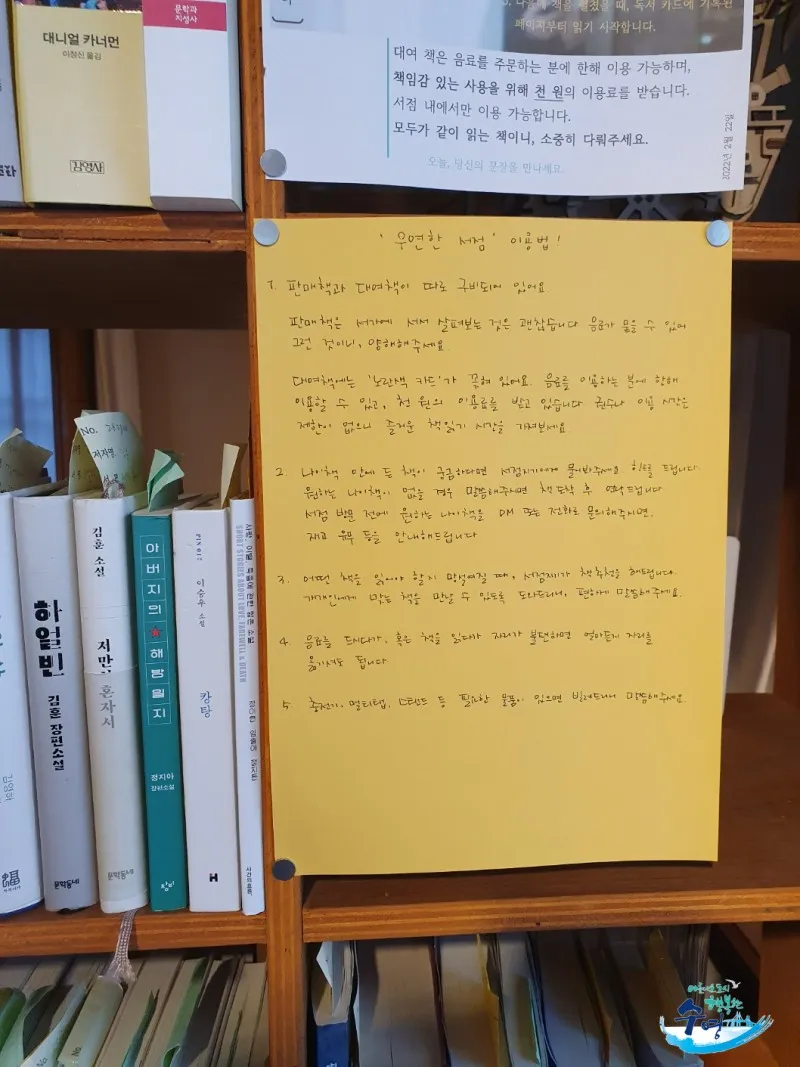 대니얼 카너먼
이창신 옮김
김영사
문학과
지성사
5. 다음에 책을 펼쳤을 때, 독서 카드에 기록된
페이지부터 읽기 시작합니다.
대여 책은 음료를 주문하는 분에 한해 이용 가능하며,
책임감 있는 사용을 위해 천 원의 이용료를 받습니다.
서점 내에서만 이용 가능합니다.
모두가 같이 읽는 책이니, 소중히 다뤄주세요.
오늘, 당신의 문장을 만나세요.
2022년 2월 22일
'우연한 서점' 이용법!
1. 판매책과 대여책이 따로 구비되어 있어요
판매책은 서가에 서서 살펴보는 것은 괜찮습니다 음료가 묻을 수 있어
그런 것이니, 양해해주세요.
대여책에는 '노란색 카드'가 꽂혀 있어요. 음료를 이용하는 분에 한해
이용할 수 있고, 천 원의 이용료를 받고 있습니다 권수나 이용 시간은
제한이 없으니 즐거운 책읽기 시간을 가져보세요
2. 나이책 안에 든 책이 궁금하다면 서점지기에게 물어봐주세요 힌트를 드립니다.
원하는 나이책이 없을 경우 말씀해주시면 책 도착 후 연락드립니다
서점 방문 전에 원하는 나이책을 DM 또는 전화로 문의해주시면,
재고 유무 등을 안내해드립니다
3. 어떤 책을 읽어야 할지 망설여질 때, 서점지기가 책추천을 해드립니다.
개개인에게 맞는 책을 만날 수 있도록 도와드리니, 편하게 말씀해주세요.
4. 음료를 드시다가, 혹은 책을 읽다가 자리가 불편하면 얼마든지 자리를
옮기셔도 됩니다
5. 충전기, 멀티탭, 스탠드 등 필요한 물품이 있으면 빌려드리니 말씀해주세요
No.
저자명
하얼빈
김훈 장편소설
문학동네
김훈 소설
혼자서
문학동네
아버지의 해방일지
정지아
장편소설
창비
이승우 소설
캉탕
사랑, 이별, 죽음에 관한 짧은 소설
SHORT STORIES ABOUT LOVE, FAREWELL & DEATH
시간의흐름
김영하
행복한
수영